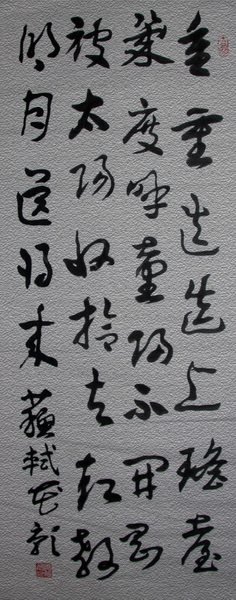 重重迭迭上瑶臺
幾度呼童掃不開剛
被太陽收拾去却教
明月送將來 蘇軾花影